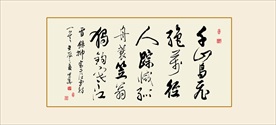 千山鳥飛
絕萬徑
人踪滅孤
舟蓑笠翁
獨釣寒江
雪